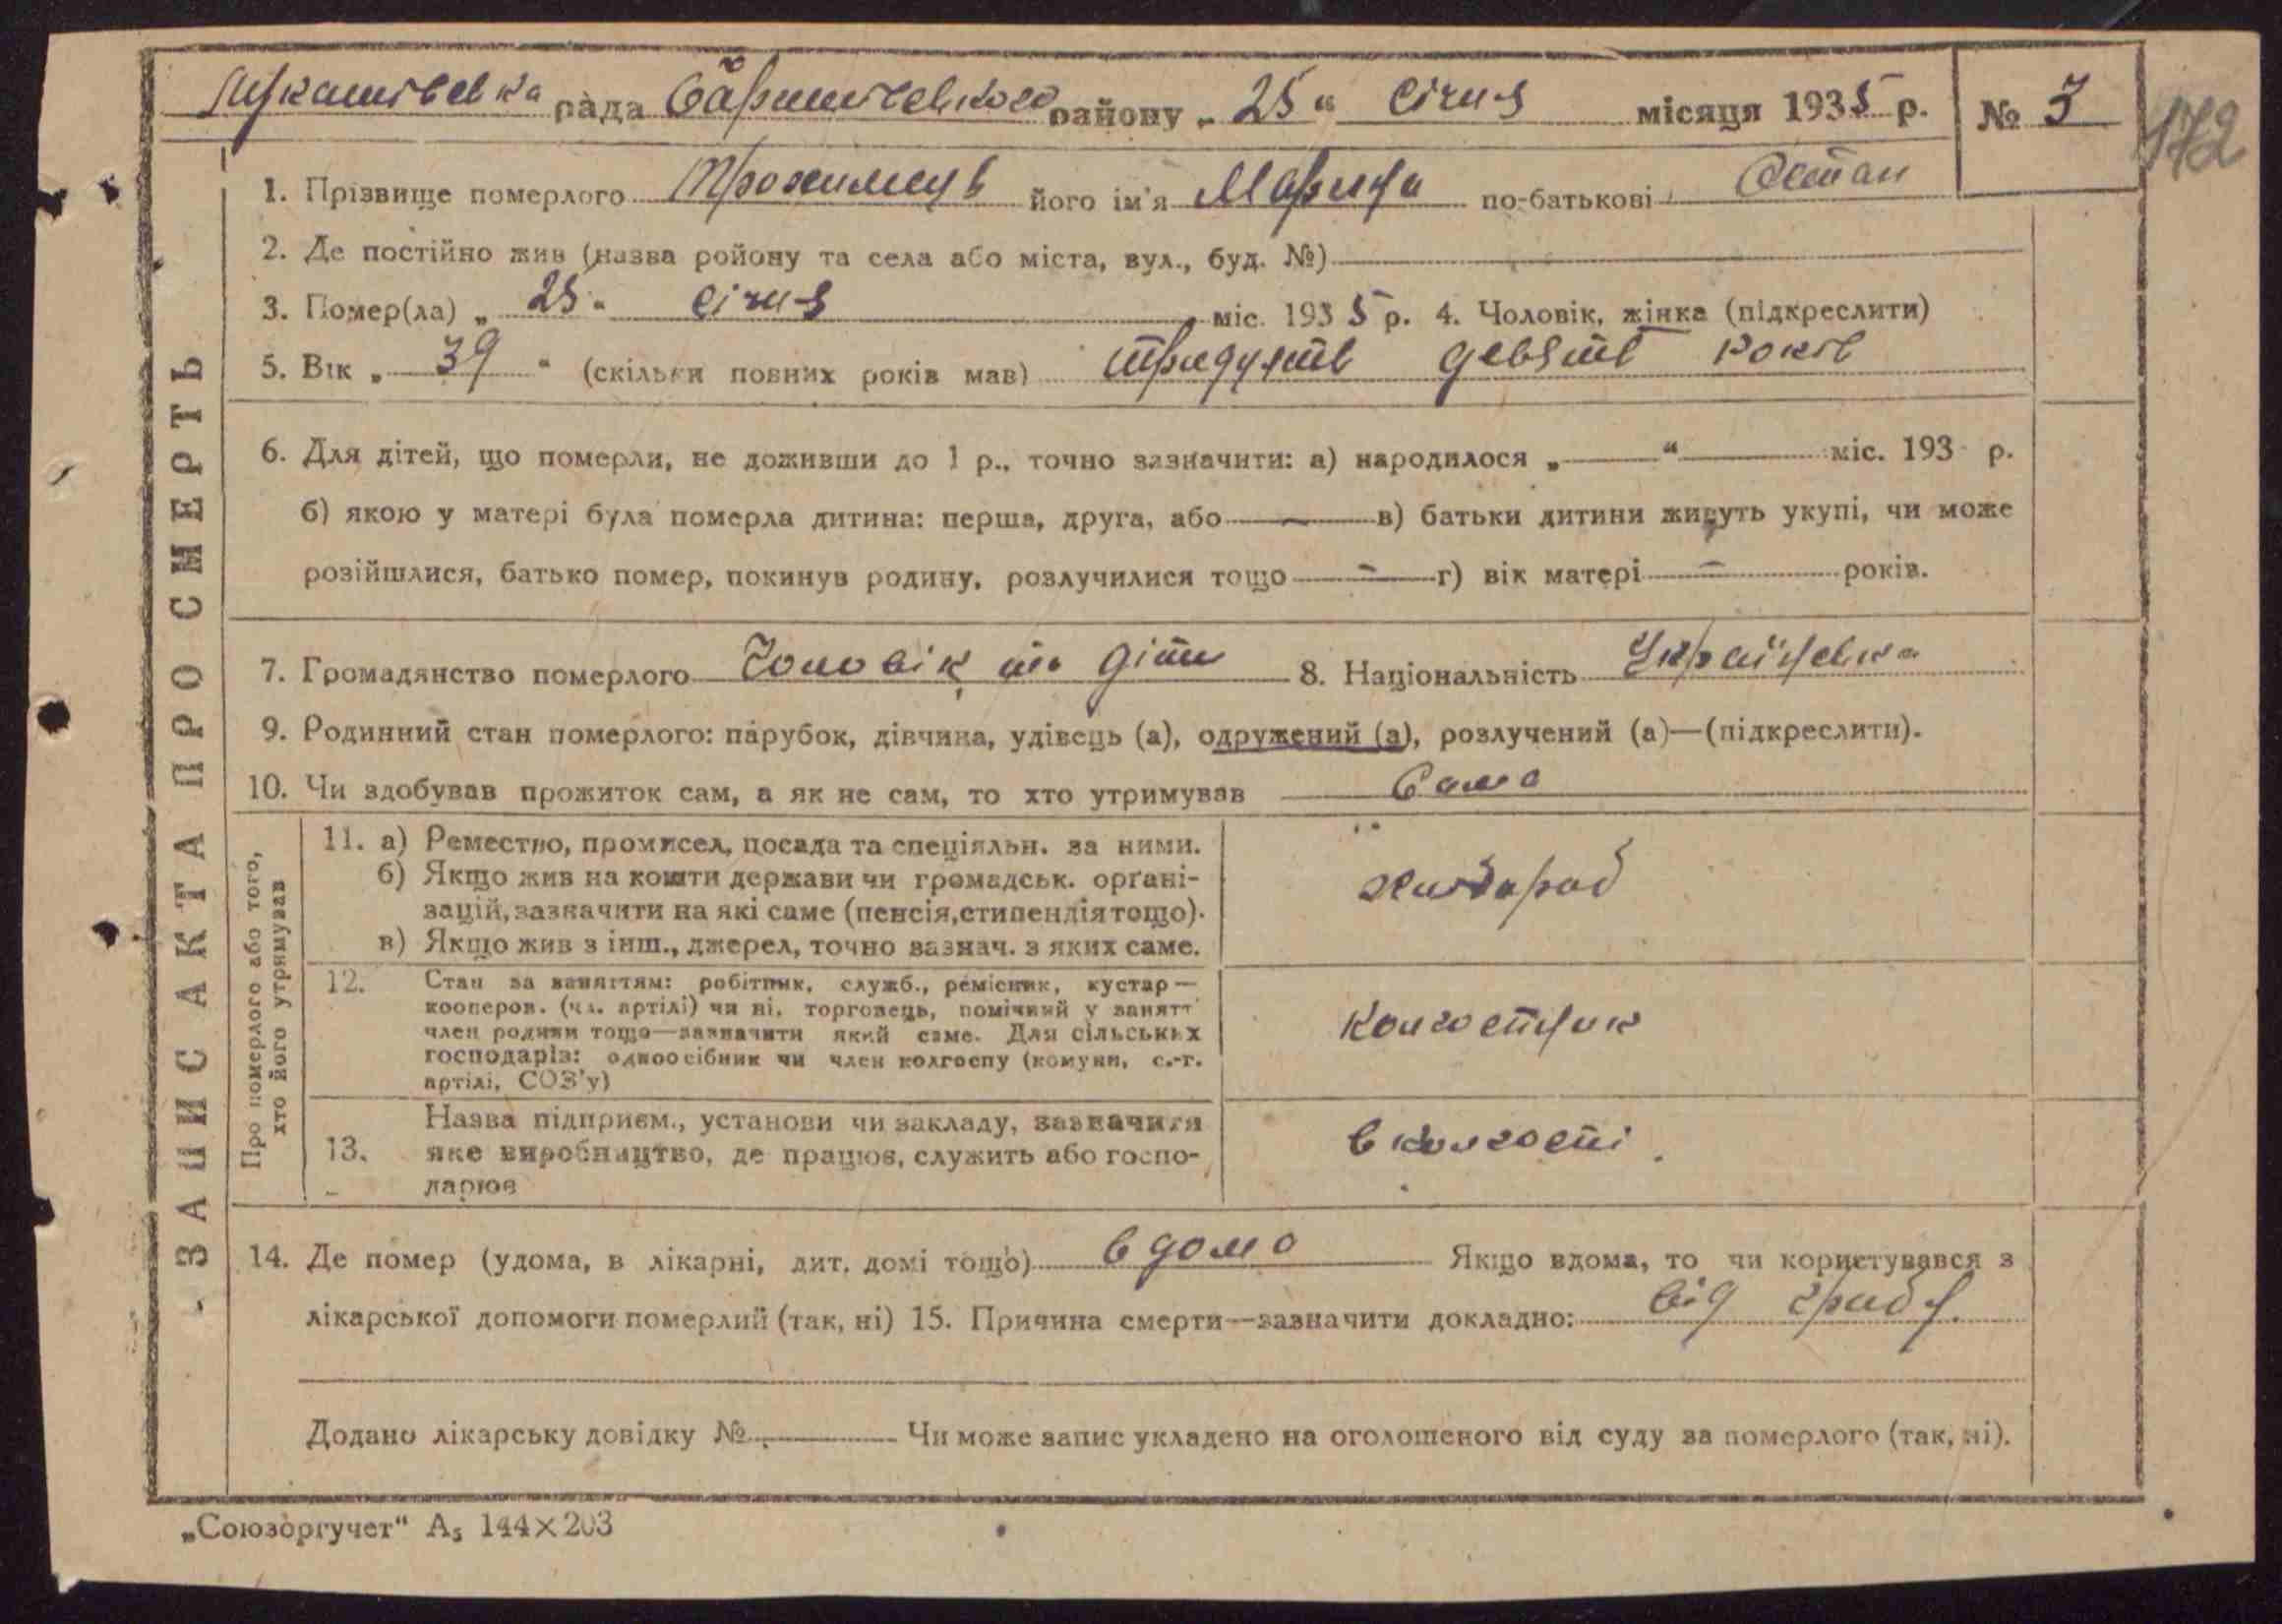 Лукашівська рада Баришівського району „ 25 “ січня місяця 1935 р. № 3
172
1. Прізвище померлого його ім'я Марина по-батькові Остап
2. Де постійно жив (назва ройону та села або міста, вул., буд. №)
3. Помер(ла) „ 25 “ січня міс. 1935 р. 4. Чоловік, жінка (підкреслити)
5. Вік „ 39 “ (скільки повних років мав) тридцять девять років
6. Для дітей, що померли, не доживши до 1 р., точно зазначити: а) народилося „ “ міс. 193 р.
б) якою у матері була померла дитина: перша, друга, або — в) батьки дитини живуть укупі, чи може
розійшлися, батько помер, покинув родину, розлучилися тощо — г) вік матері — років.
7. Громадянство померлого Чоловік та діти 8. Національність Українська
9. Родинний стан померлого: парубок, дівчина, удівець (а), одружений (а), розлучений (а)—(підкреслити).
10. Чи здобував прожиток сам, а як не сам, то хто утримував Сама
ЗАПИС АКТА ПРО СМЕРТЬ
Про померлого або того,
хто його утримував
11. а) Ремество, промисел, посада та спеціяльн. за ними.
б) Якщо жив на кошти держави чи громадськ. органі-
зацій, зазначити на які саме (пенсія, стипендія тощо).
в) Якщо жив з інш., джерел, точно зазнач. з яких саме.
хлібороб
12. Стан за заняттям: робітник, служб., ремісник, кустар—
кооперов. (чл. артілі) чи ні, торговець, помічний у занятт
член родини тощо—зазначити який саме. Для сільських
господарів: одноосібник чи член колгоспу (комуни, с.-г.
артілі, СОЗ'у)
колгоспник
13. Назва підприєм., установи чи закладу, зазначити
яке виробництво, де працює, служить або госпо-
дарює
в колгоспі.
14. Де помер (удома, в лікарні, дит. домі тощо) вдома Якщо вдома, то чи користувався з
лікарської допомоги померлий (так, ні) 15. Причина смерти—зазначити докладно: від
Додано лікарську довідку № Чи може запис укладено на оголошеного від суду за померлого (так, ні).
„Союзоргучет“ А₅ 144×203